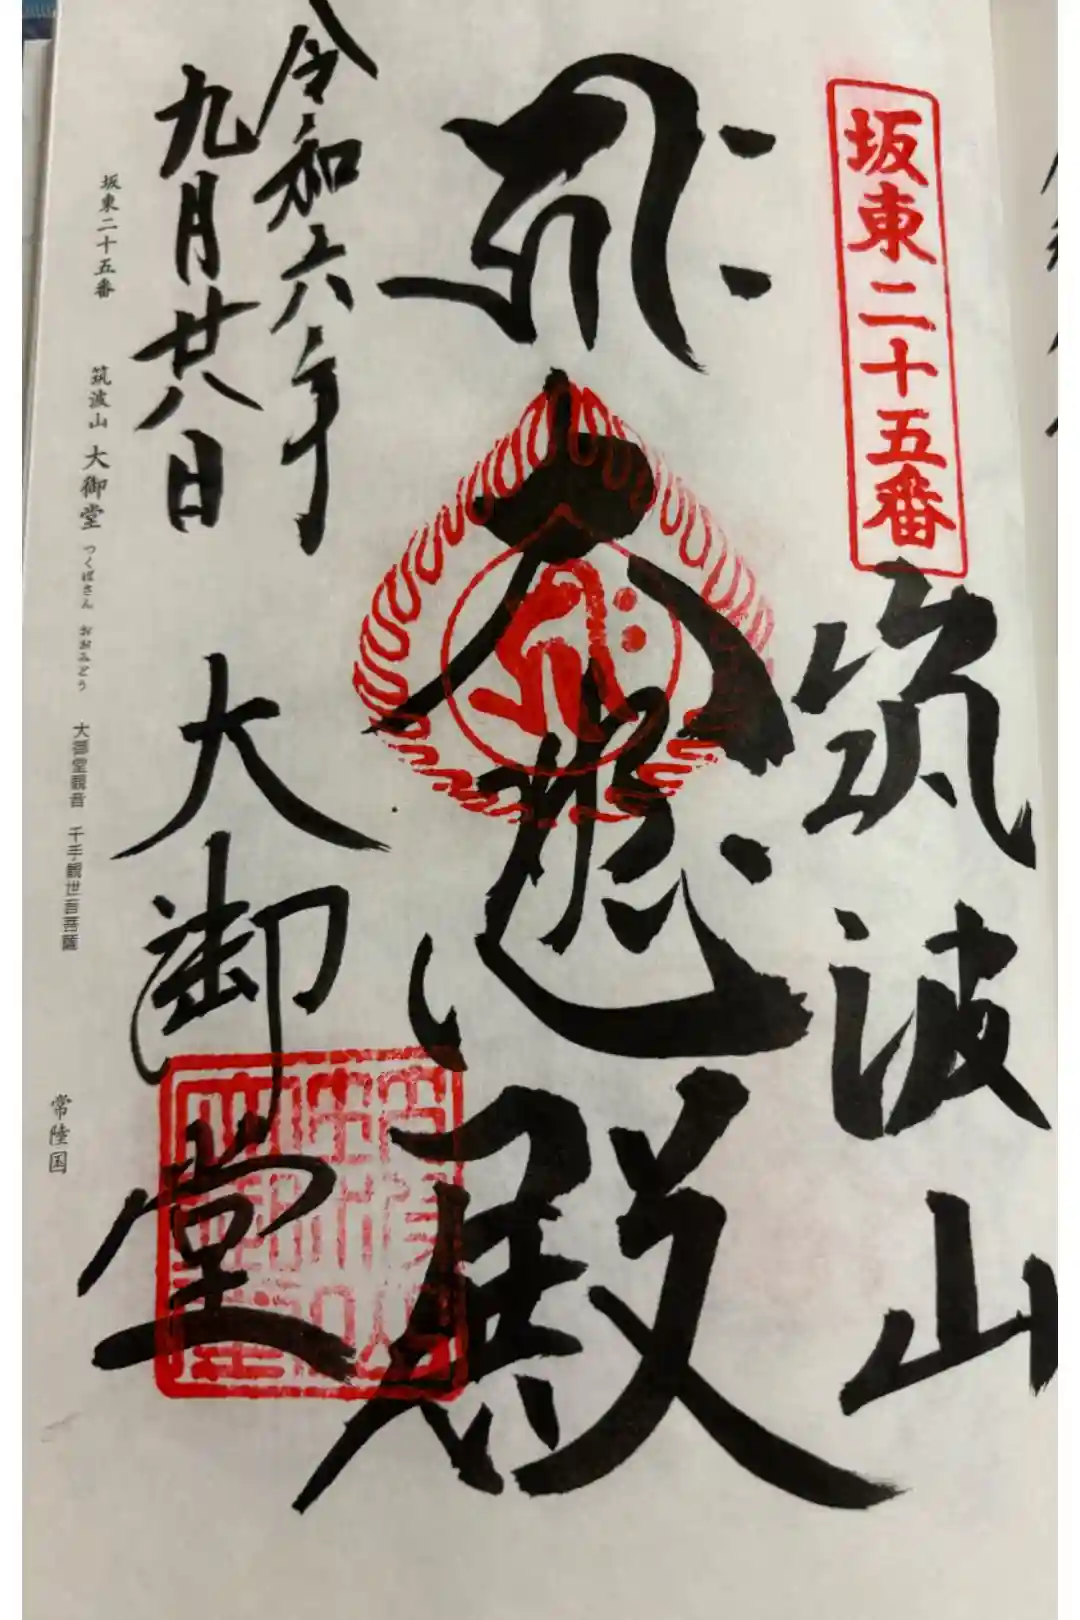 坂東二十五番
筑波山
大悲殿
令和六年
九月廿八日
大御堂
坂東二十五番 筑波山 大御堂 つくばさん おおみどう 大御堂観音 千手観世音菩薩 常陸国